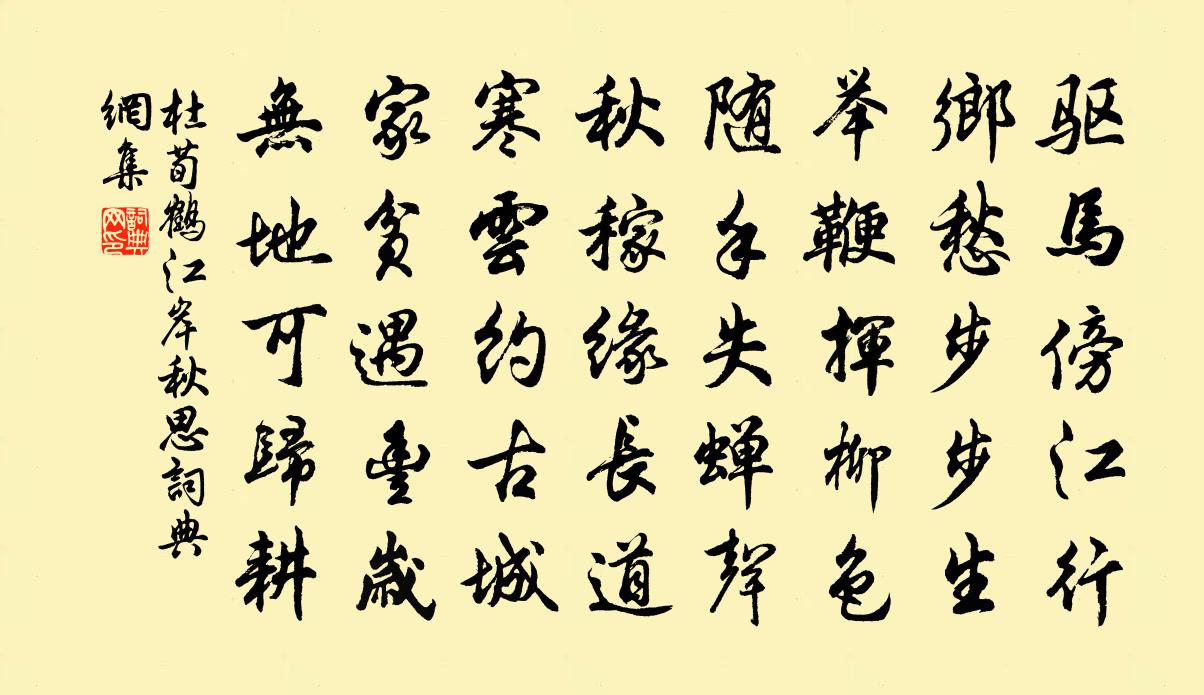 驱馬傍江行
鄉愁步步生
举鞭揮柳色
随手失蝉聲
秋稼缘長道
寒雲约古城
家貧遇豊歲
無地可歸耕
杜荀鶴江岸秋思詞典
網集
詞典
网印